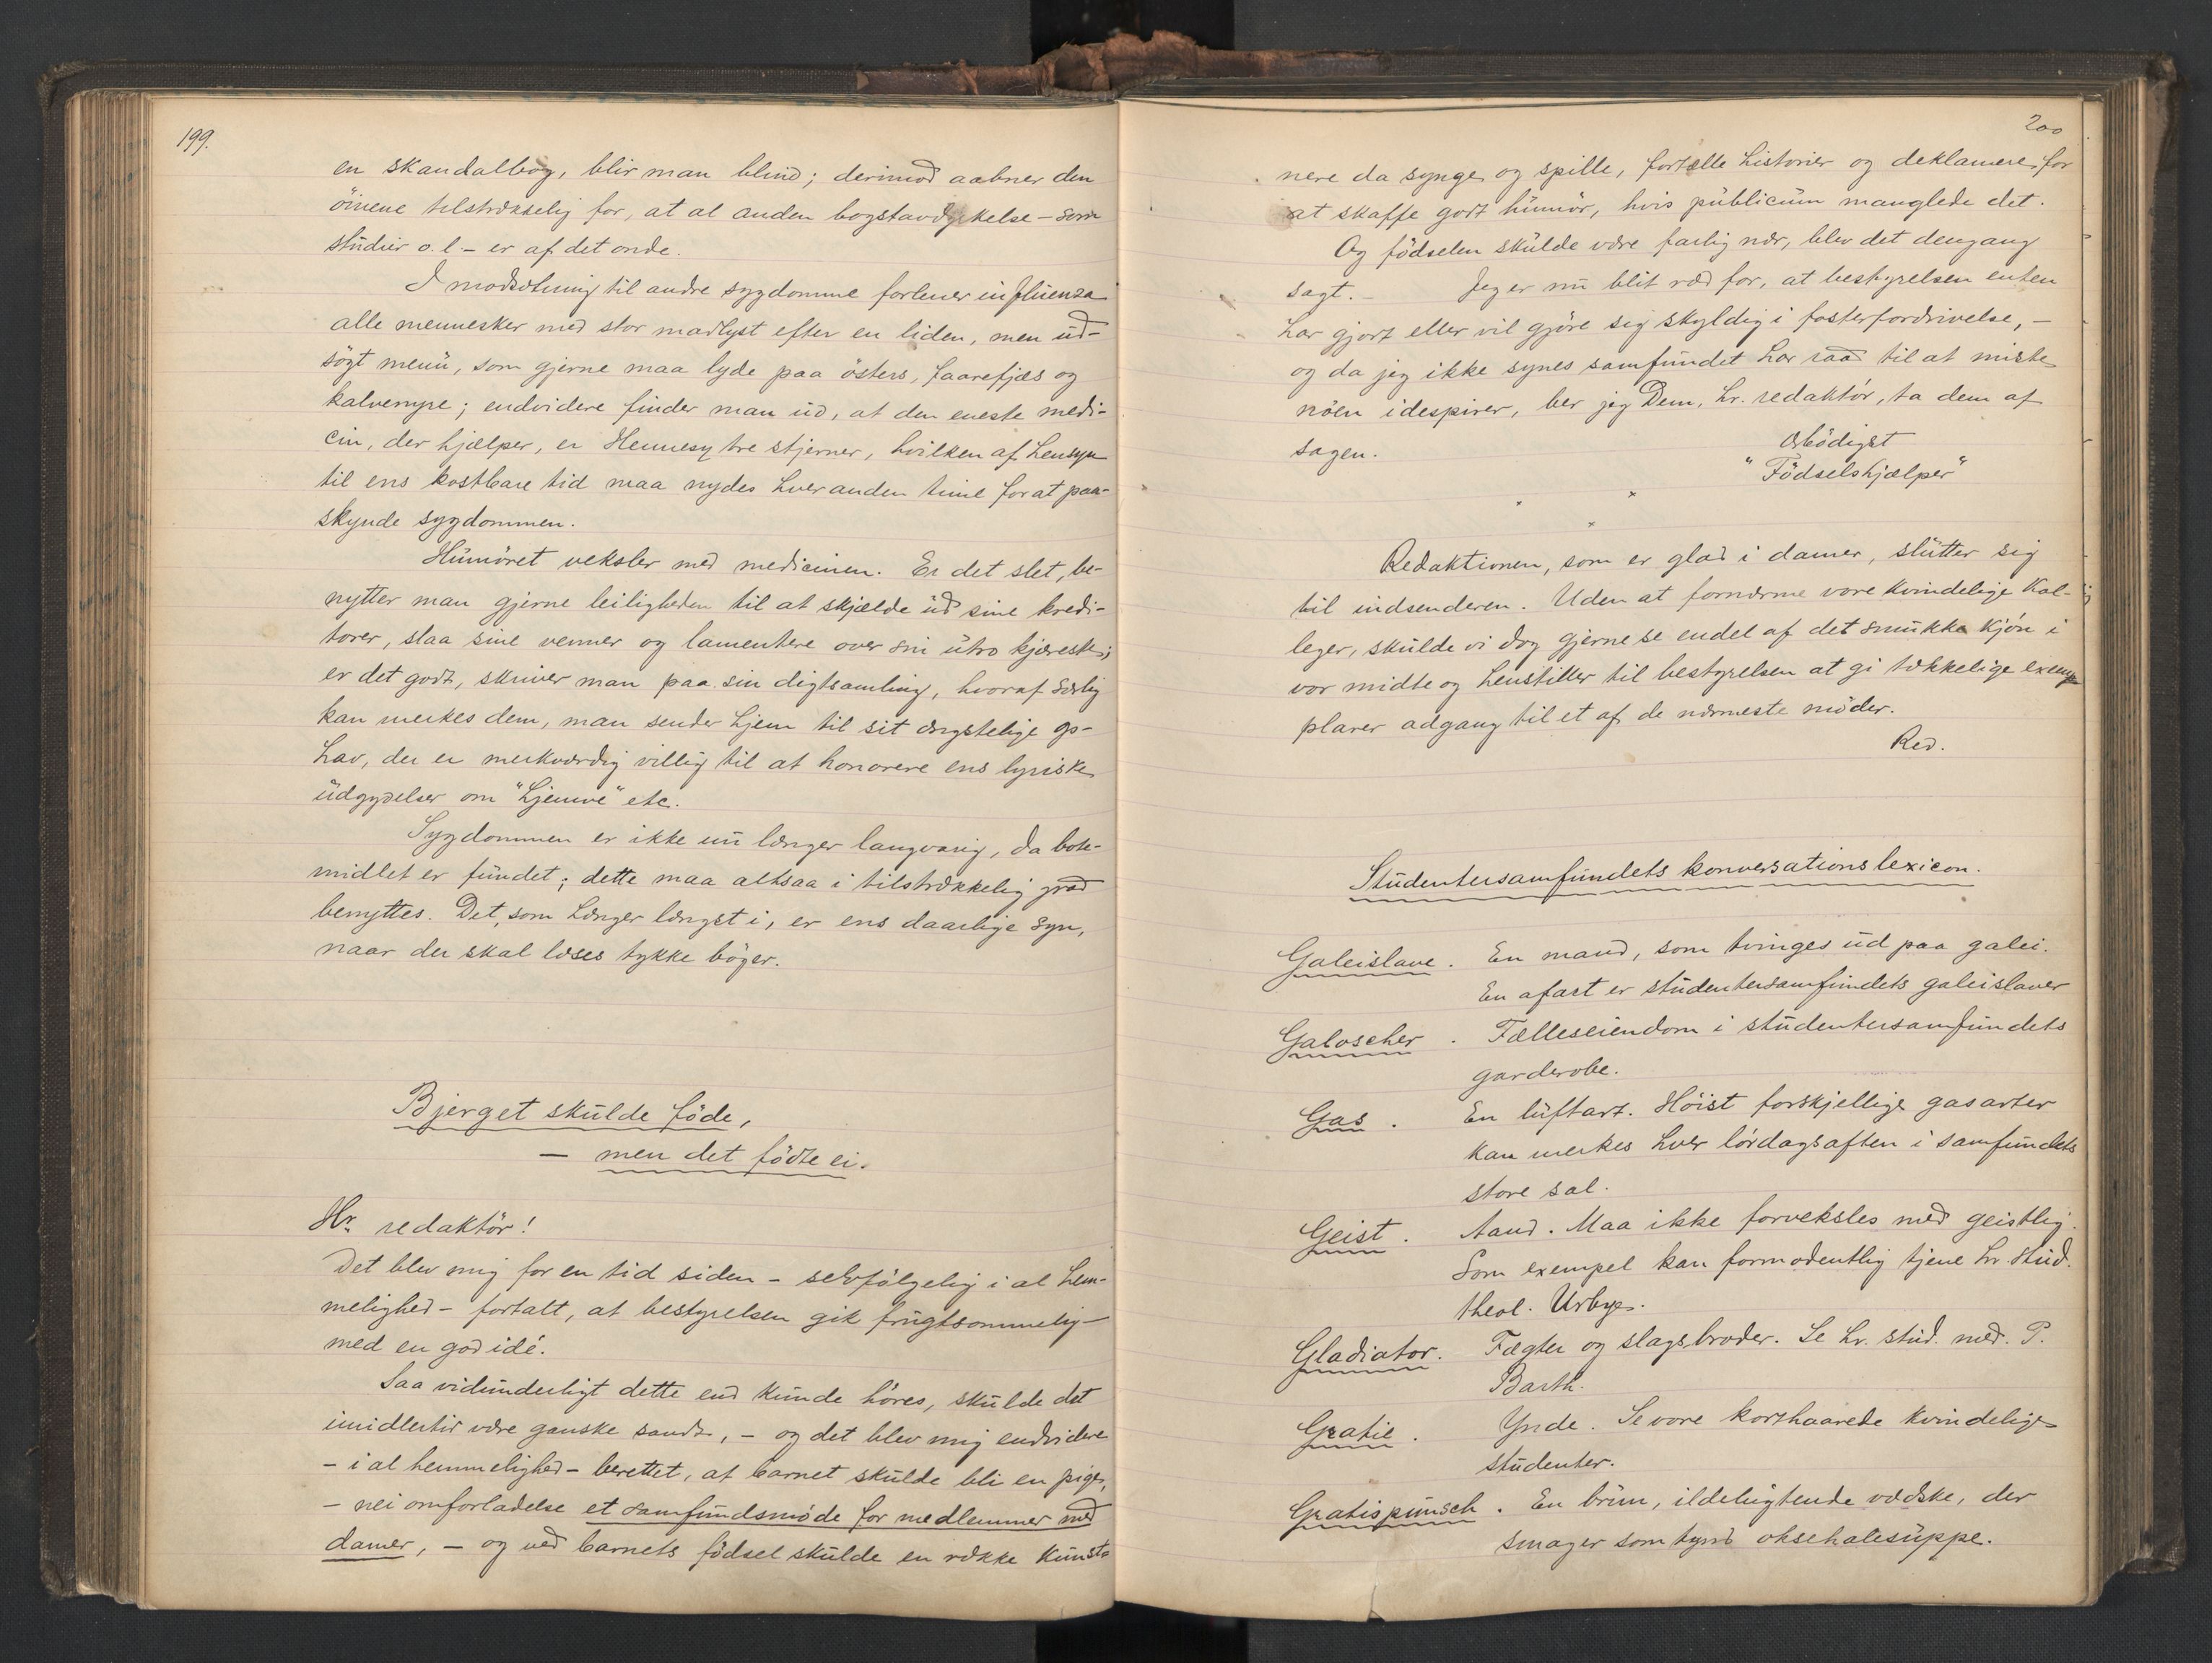 199.
en skandalbog, blir man blind; derimod aabner den
öinene tilstrækkelig for, at al anden bogstavdyrkelse – som
studier o. l. – er af det onde.
I modsætning til andre sygdomme forlener influenza
alle mennesker med stor madlyst efter en liden, men ud-
søgt menu, som gjerne maa lyde paa östers, faarefjæs og
kalvenyre; endvidere finder man ud, at den eneste medi-
cin, der hjælper, er Hennesy tre stjerner, hvilken af hensyn
til ens kostbare tid maa nydes hver anden time for at paa-
skynde sygdommen.
Humöret veksler med medicinen. Er det slet, be-
nytter man gjerne leiligheden til at skjælde ud sine kredi-
torer, slaa sine venner og lamentere over sin utro kjæreste;
er det godt, skriver man paa sin digtsamling, hvoraf særlig
kan merkes dem, man sender hjem til sit ængstelige op-
hav, der er merkværdig villig til at honorere ens lyriske
udgydelser om "hjemve" etc.
Sygdommen er ikke nu længer langvarig, da bote-
midlet er fundet; dette maa altsaa i tilstrækkelig grad
benyttes. Det, som hænger længst i, er ens daarlige syn,
naar der skal læses tykke böger.
Bjerget skulde föde,
– men det födte ei.
Hr. redaktör!
Det blev mig for en tid siden – selvfölgelig i al hem-
melighed – fortalt, at bestyrelsen gik frugtsommelig –
med en god idé.
Saa vidunderligt dette end kunde höres, skulde det
imidlertid være ganske sandt, – og det blev mig endvidere
– i al hemmelighed – berettet, at barnet skulde bli en pige,
– nei omforladelse et samfundsmöde for medlemmer med
damer, – og ved barnets födsel skulde en række kunst-
200
nere da synge og spille, fortælle historier og deklamere for
at skaffe godt humör, hvis publicum manglede det.
Og födselen skulde være farlig nær, blev det dengang
sagt. – Jeg er nu blit ræd for, at bestyrelsen enten
har gjort eller vil gjöre sig skyldig i fosterfordrivelse, –
og da jeg ikke synes samfundet har raad til at miste
nöen idespirer, ber jeg Dem, hr. redaktör, ta dem af
sagen.
Ærbödigst
"Födselshjælper"
Redaktionen, som er glad i damer, slutter sig
til indsenderen. Uden at fornærme vore kvindelige kol-
leger, skulde vi dog gjerne se endel af det smukke kjön i
vor midte og henstiller til bestyrelsen at gi tækkelige exem-
plarer adgang til et af de nærmeste möder.
Red.
Studentersamfundets konversationslexicon.
Galeislave. En mand, som tvinges ud paa galei.
En afart er studentersamfundets galeislaver
Galoscher. Fælleseiendom i studentersamfundets
garderobe.
Gas. En luftart. Höist forskjellige gasarter
kan merkes hver lördagsaften i samfundets
store sal.
Geist. Aand. Maa ikke forveksles med geistlig.
Som exempel kan formodentlig tjene hr. stud.
theol. Urbye.
Gladiator. Fægter og slagsbroder. Se hr. stud. med. P.
Barth.
Gratie. Ynde. Se vore korthaarede kvindelige
studenter.
Gratispunsch. En brun, ildelugtende vædske, der
smager som tynd oksehalesuppe.